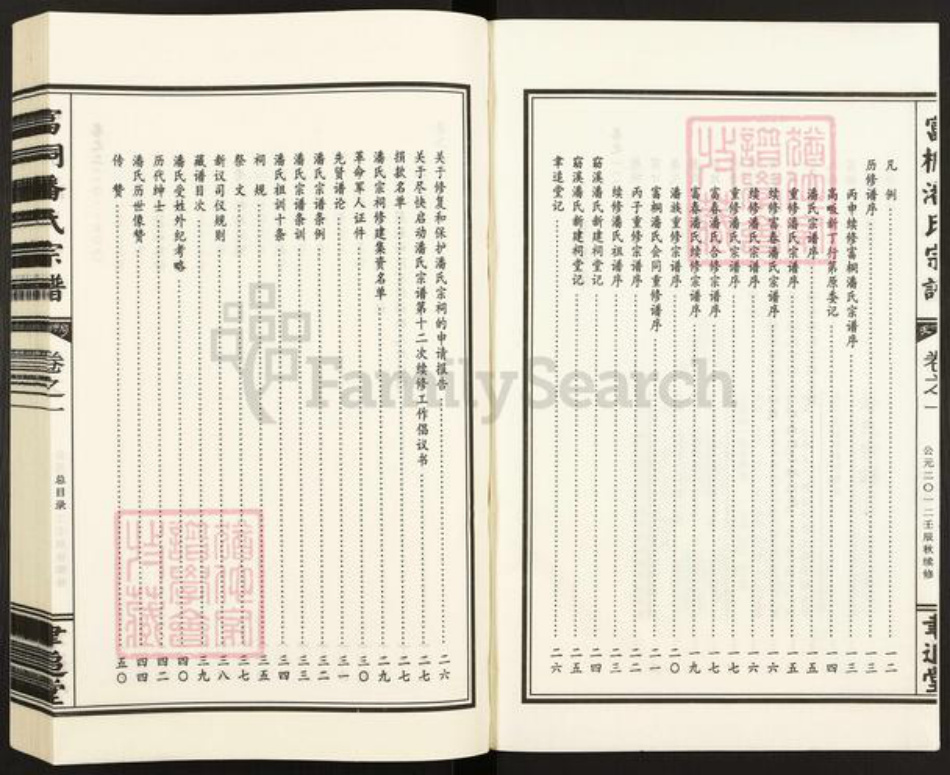 富桐潘氏宗谱
卷之一
公元二〇一二壬辰秋续修
聿追堂
凡 例 一二
历修谱序 一三
丙申续修富桐潘氏宗谱序 一三
高畈新丁行第原委记 一四
潘氏宗谱序 一五
重修潘氏宗谱序 一五
续修富春潘氏宗谱序 一六
重修潘氏宗谱序 一六
重修潘氏宗谱序 一七
富春潘氏合修宗谱序 一八
富春潘氏续修宗谱序 一九
潘族重修宗谱序 二〇
富桐潘氏会同重修谱序 二一
丙子重修宗谱序 二二
续修潘氏祖谱序 二三
窈溪潘氏新建祠堂记 二四
窈溪潘氏新建祠堂记 二五
聿追堂记 二六
关于修复和保护潘氏宗祠的申请报告 二六
关于尽快启动潘氏宗谱第十二次续修工作倡议书 二七
捐款名单 二七
潘氏宗祠修建集资名单 二九
革命军人证件 三〇
先贤谱论 三一
潘氏宗谱条例 三二
潘氏宗谱条训 三三
潘氏祖训十条 三四
祠 规 三五
祭 文 三七
新议司仪规则 三八
藏谱目次 三九
潘氏受姓外纪考略 四〇
历代绅士 四二
潘氏历世像赞 四四
传 赞 五〇
富桐潘氏宗谱
卷之一
总目录
聿追堂
FamilySearch